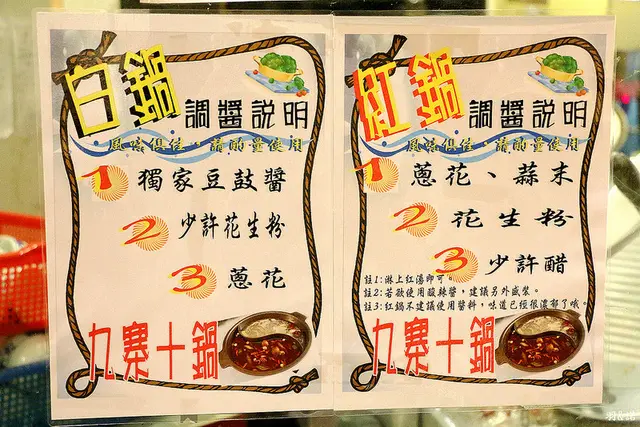 白鍋 調醬說明
風味俱佳,請酌量使用
1 獨家豆鼓醬
2 少許花生粉
3 蔥花
九寨十鍋
紅鍋 調醬說明
風味俱佳,請酌量使用
1 蔥花、蒜末
2 花生粉
3 少許醋
註1:淋上紅湯即可。
註2:若欲使用酸辣醬,建議另外盛裝。
註3:紅鍋不建議使用醬料,味道已經很濃郁了哦。
九寨十鍋